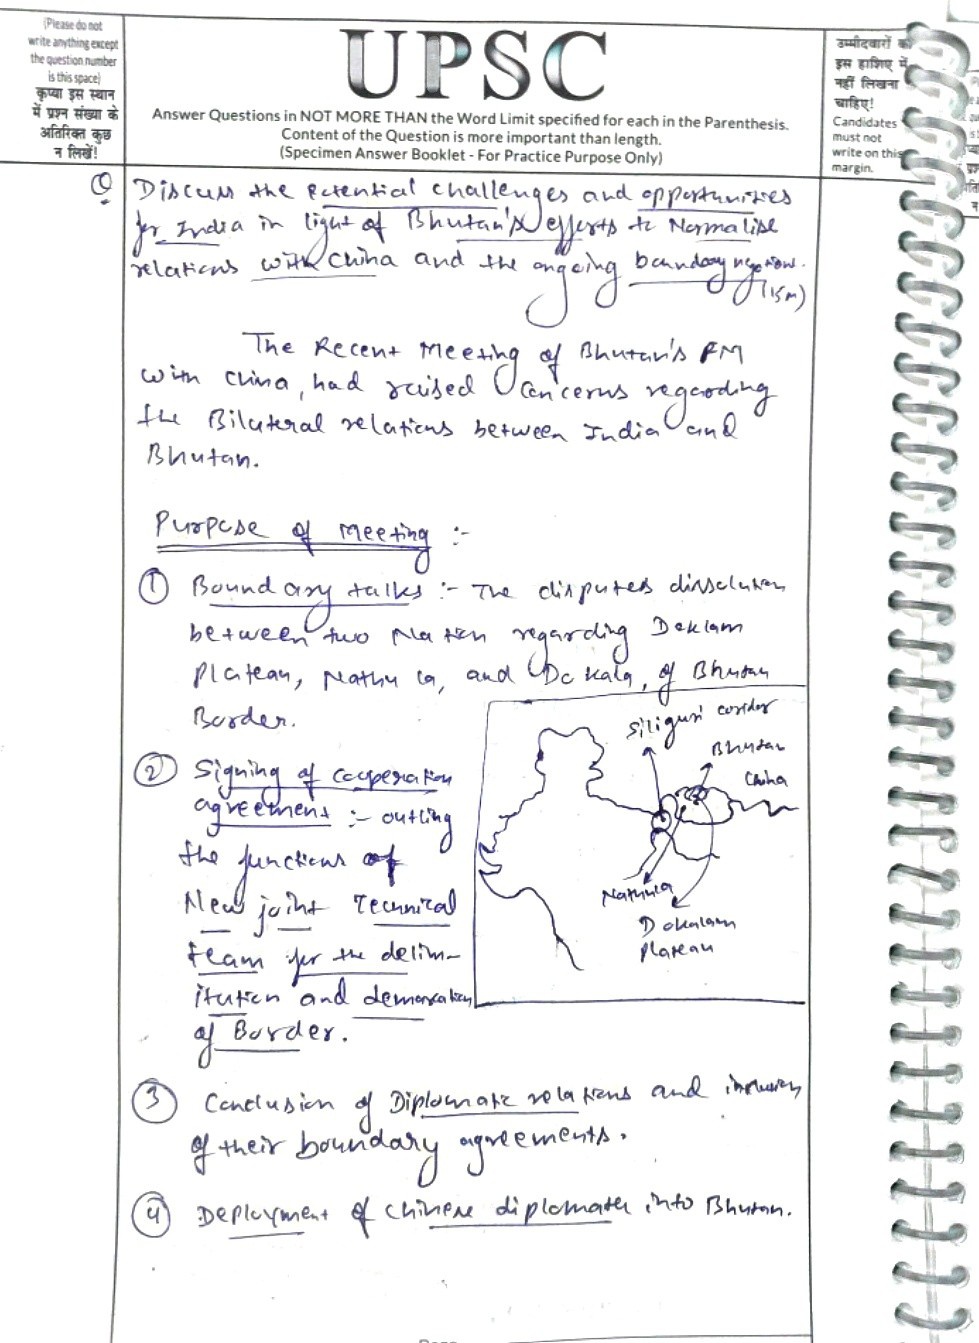 (Please do not
write anything except
the question number
is this space)
कृप्या इस स्थान
में प्रश्न संख्या के
अतिरिक्त कुछ
न लिखें!
UPSC
Answer Questions in NOT MORE THAN the Word Limit specified for each in the Parenthesis.
Content of the Question is more important than length.
(Specimen Answer Booklet - For Practice Purpose Only)
उम्मीदवारों को
इस हाशिए में
नहीं लिखना
चाहिए!
Candidates
must not
write on this
margin.
Q Discuss the potential challenges and opportunities
for India in light of Bhutan's efforts to Normalise
relations with China and the ongoing boundary
(15m)
The Recent Meeting of Bhutan's FM
with China, had raised Concerns regarding
the Bilateral relations between India and
Bhutan.
Purpose of Meeting :-
① Boundary talks :- The disputes
between two Nation regarding Doklam
Plateau, Nathu la, and Do kala, of Bhutan
Border.
② Signing of cooperation
agreement :- outling
the functions of
New joint Technical
team for the delim-
itution and demarcation
of Border.
Siliguri coridor
Bhutan
China
Nathula
Dokalam
plateau
③ Conclusion of Diplomatic relations and
of their boundary agreements.
④ Deployment of Chinese into Bhutan.